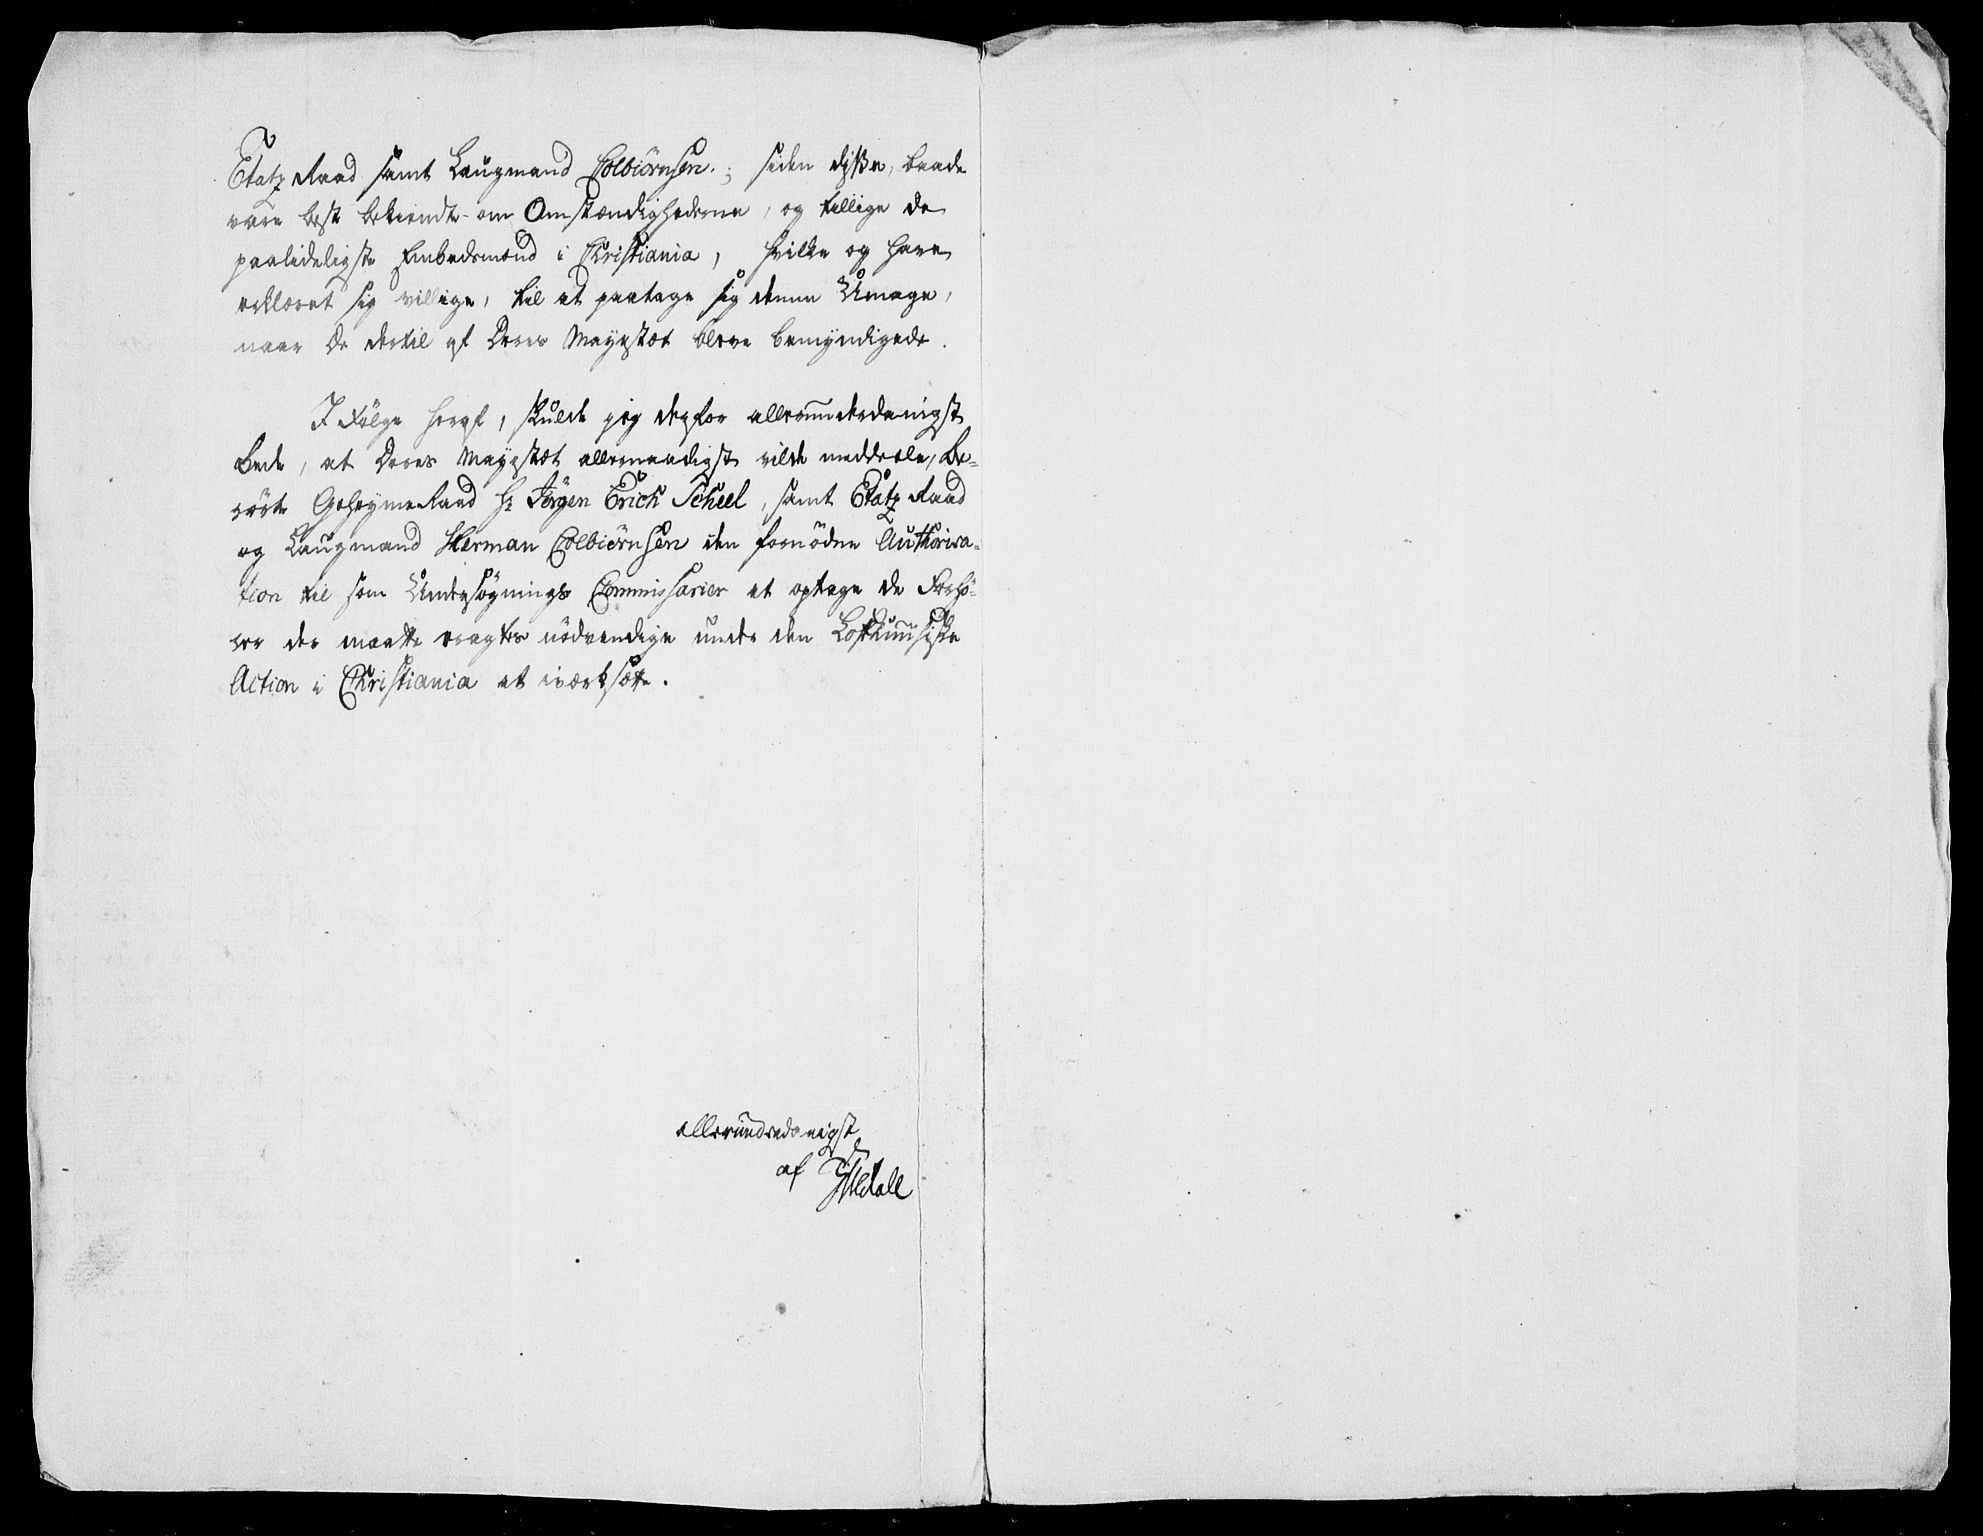 Etatz Raad samt Laugmand Colbiörnsen.; siden disse, baade
vare best bekiendte om Omstændighederne, og tillige de
paalideligste Embedsmænd i Christiania, hvilke og have
erklæret sig villige, til at paatage sig denne Umage,
naar De dertil af Deres Mayestæt bleve bemyndigede.
I Fölge heraf, skulde jeg derfor allerunderdanigst
bede, at Deres Mayestæt allernaadigst vilde meddeele, Be-
rörte GeheymeRaad Hr Jörgen Erich Scheel, samt Etatz Raad
og Laugmand Herman Colbiörnsen den fornödne Authorisa-
tion til som Undersögnings Commissarier at optage de Forhö-
rer der maatte eragtes nödvendige under den Lofthuusiske
Action i Christiania at iværksætte.
allerunderdanigst
af